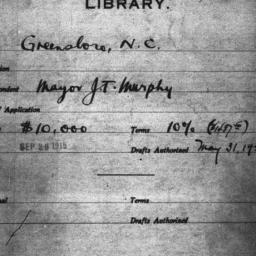 LIBRARY.
Greensboro, N.C.
Mayor J.T. Murphy
Application
$10,000 Terms 10%
SEP 28 1915 Drafts Authorized May 31, 19
Terms
Drafts Authorized